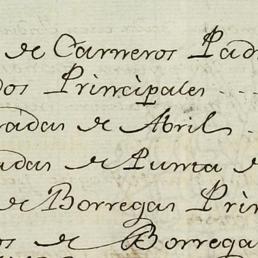 de Carneros Pad
dos Principales ....
radas de Abril
adas de Punta d
de Borregas Prin
os de Borregas